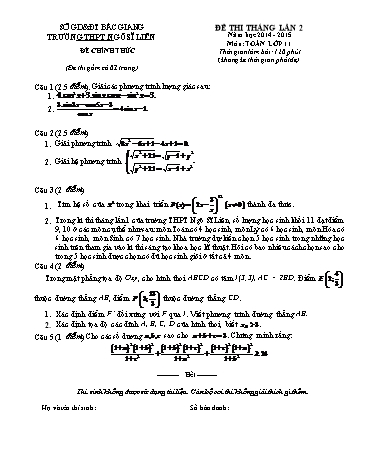 SỞ GD&ĐT BẮC GIANG
TRƯỜNG THPT NGÔ SĨ LIÊN
ĐỀ CHÍNH THỨC
(Đề thi gồm có 02 trang)
ĐỀ THI THÁNG LẦN 2
Năm học 2014 - 2015
Môn: TOÁN LỚP 11
Thời gian làm bài: 120 phút
(không kể thời gian phát đề)
Câu 1 (2.5 điểm). Giải các phương trình lượng giác sau:
Câu 2 (2.5 điểm)
1. Giải phương trình
2. Giải hệ phương trình
Câu 3 (2 điểm)
1. Tìm hệ số của x⁴ trong khai triển thành đa thức.
2. Trong kì thi tháng lần 1 của trường THPT Ngô Sĩ Liên, số lượng học sinh khối 11 đạt điểm
9, 10 ở các môn cụ thể như sau: môn Toán có 4 học sinh, môn Lý có 6 học sinh, môn Hóa có
6 học sinh, môn Sinh có 7 học sinh. Nhà trường dự kiến chọn 5 học sinh trong những học
sinh trên tham gia vào kì thi sáng tạo khoa học kĩ thuật. Hỏi có bao nhiêu cách chọn sao cho
trong 5 học sinh được chọn có đủ học sinh giỏi ở tất cả 4 môn.
Câu 4 (2 điểm)
Trong mặt phẳng tọa độ Oxy, cho hình thoi ABCD có tâm I(3, 3), AC = 2BD. Điểm
thuộc đường thẳng AB, điểm thuộc đường thẳng CD.
1. Xác định điểm F' đối xứng với F qua I. Viết phương trình đường thẳng AB.
2. Xác định tọa độ các đỉnh A, B, C, D của hình thoi, biết
Câu 5 (1 điểm) Cho các số dương a,b,c sao cho a+b+c=3. Chứng minh rằng:
Hết
Thí sinh không được sử dụng tài liệu. Cán bộ coi thi không giải thích gì thêm.
Họ và tên thí sinh: Số báo danh: